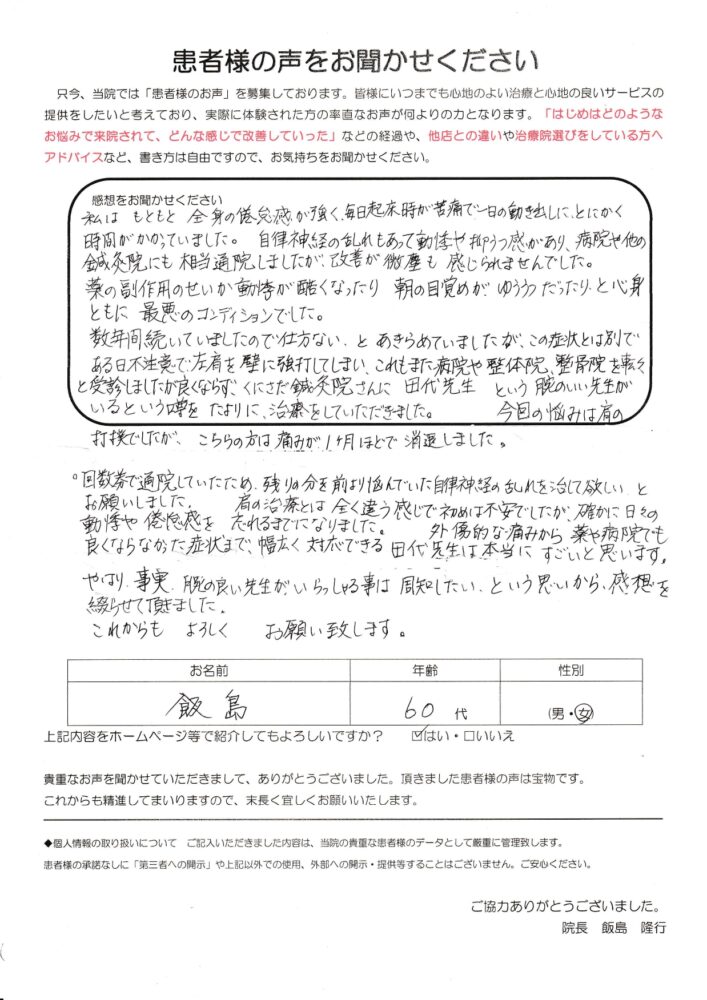 患者様の声をお聞かせください
只今、当院では「患者様のお声」を募集しております。皆様にいつまでも心地のよい治療と心地の良いサービスの
提供をしたいと考えており、実際に体験された方の率直なお声が何よりの力となります。「はじめはどのような
お悩みで来院されて、どんな感じで改善していった」などの経過や、他店との違いや治療院選びをしている方へ
アドバイスなど、書き方は自由ですので、お気持ちをお聞かせください。
感想をお聞かせください
私は もともと 全身の倦怠感が強く、毎日起床時が苦痛で一日の動き出しに、とにかく
時間がかかっていました。 自律神経の乱れもあって動悸や抑うつ感があり、病院や他の
鍼灸院にも 相当通院しましたが、改善が微塵も 感じられませんでした。
薬の副作用のせいか動悸が酷くなったり 朝の目覚めが、ゆううつだったり、と心身
ともに 最悪のコンディションでした。
数年間続いていましたので仕方ない、と あきらめていましたが、この症状とは別で
ある日不注意で左肩を壁に強打してしまい、これもまた病院や整体院、整骨院を転々
と受診しましたが良くならず、くにさだ鍼灸院さんに 田代先生 という 腕のいい先生が
いるという噂を たよりに、治療をしていただきました。 今回の悩みは肩の
打撲でしたが、 こちらの方は痛みが1ヶ月ほどで 消退しました。
。回数券で通院していたため、残りの分を前より悩んでいた自律神経の乱れを治して欲しい と
お願いしました。 肩の治療とは 全く違う感じで初めは不安でしたが、確かに日々の
動悸や 倦怠感を 忘れるまでになりました。 外傷的な痛みから 薬や病院でも
良くならなかった症状まで、幅広く 対応できる 田代先生は本当に すごいと思います。
やはり、事実、腕の良い先生が、いらっしゃる事は 周知したい、という思いから、感想を
綴らせて頂きました。
これからも よろしく お願い致します。
お名前 年齢 性別
飯島 60代 (男・女)
上記内容をホームページ等で紹介してもよろしいですか? ☑はい・□いいえ
貴重なお声を聞かせていただきまして、ありがとうございました。頂きました患者様の声は宝物です。
これからも精進してまいりますので、末長く宜しくお願いいたします。
◆個人情報の取り扱いについて ご記入いただきました内容は、当院の貴重な患者様のデータとして厳重に管理致します。
患者様の承諾なしに「第三者への開示」や上記以外での使用、外部への開示・提供等することはございません。ご安心ください。
ご協力ありがとうございました。
院長 飯島 隆行